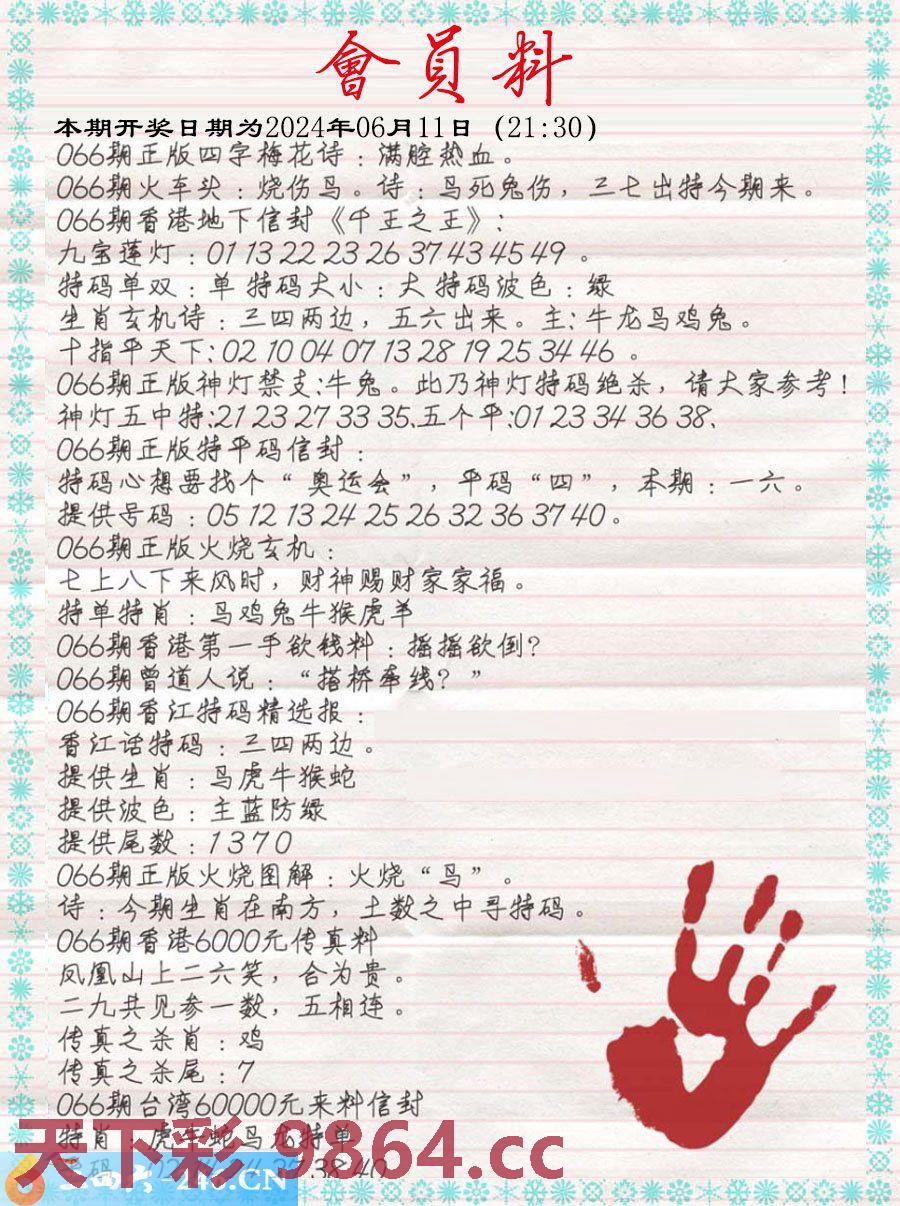 會員料
本期开奖日期为2024年06月11日（21:30）
066期正版四字梅花诗：满腔热血。
066期火车头：烧伤鸟。诗：鸟死兔伤，三七出特今期来。
066期香港地下信封《千王之王》：
九宝莲灯：01 13 22 23 26 37 43 45 49 。
特码单双：单 特码大小：大 特码波色：绿
生肖玄机诗：三四两边，五六出来。主：牛龙鸟鸡兔。
十指平天下：02 10 04 07 13 28 19 25 34 46 。
066期正版神灯禁支：牛兔。此乃神灯特码绝杀，请大家参考！
神灯五中特：21 23 27 33 35、五个平：01 23 34 36 38、
066期正版特平码信封：
特码心想要找个“奥运会”，平码“四”，本期：一六。
提供号码：05 12 13 24 25 26 32 36 37 40。
066期正版火烧玄机：
七上八下来风时，财神赐财家家福。
特单特肖：马鸡兔牛猴虎羊
066期香港第一手欲钱料：摇摇欲倒？
066期曾道人说：“搭桥牵线？”
066期香江特码精选报：
香江话特码：三四两边。
提供生肖：马虎牛猴蛇
提供波色：主蓝防绿
提供尾数：1 3 7 0
066期正版火烧图解：火烧“鸟”。
诗：今期生肖在南方，土数之中寻特码。
066期香港6000元传真料
凤凰山上二六笑，合为贵。
二九共见参一数，五相连。
传真之杀肖：鸡
传真之杀尾：7
066期台湾60000元来料信封
特肖：虎牛蛇马龙特单
37 38 40
天下彩 9864.cc
246.CN